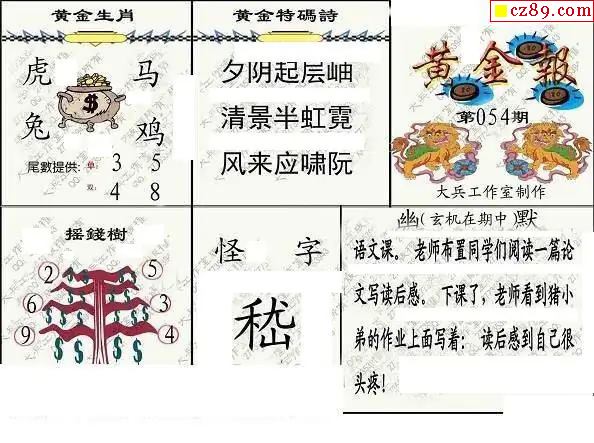 cz89.com
黄金生肖
虎 马
兔 鸡
尾數提供: 单: 3 5
双: 4 8
黄金特碼詩
夕阴起层岫
清景半虹霓
风来应啸阮
黄金報
第054期
大兵工作室制作
摇錢樹
2 5
6 3
9 4
怪 字
嵇
幽(玄机在期中)默
语文课。 老师布置同学们阅读一篇论
文写读后感。 下课了，老师看到猪小
弟的作业上面写着： 读后感到自己很
头疼！